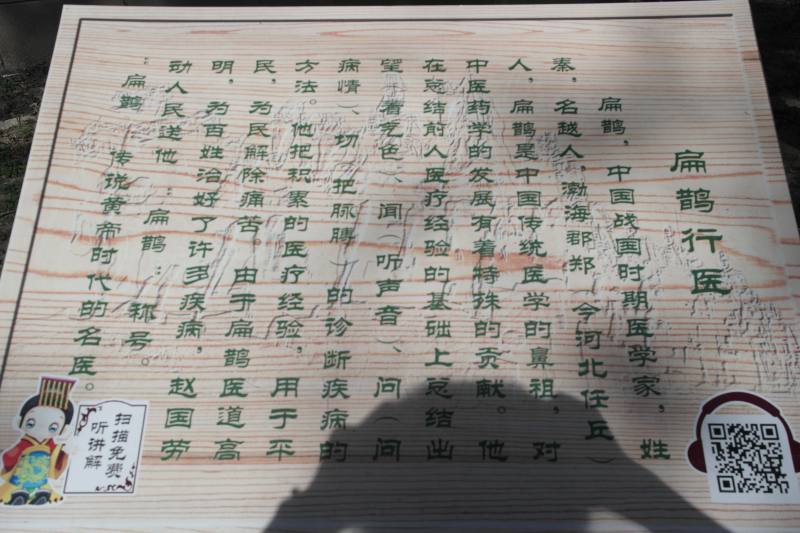 扁鹊行医
扁鹊，中国战国时期医学家，姓
秦，名越人，渤海郡郑（今河北任丘）
人，扁鹊是中国传统医学的鼻祖，对
中医药学的发展有着特殊的贡献。他
在总结前人医疗经验的基础上总结出
望（看气色）、闻（听声音）、问（问
病情）、切（把脉膊）的诊断疾病的
方法。他把积累的医疗经验，用于平
民，为民解除痛苦。由于扁鹊医道高
明，为百姓治好了许多疾病，赵国劳
动人民送他“扁鹊”称号。
“扁鹊”传说黄帝时代的名医。
扫描免费
听讲解